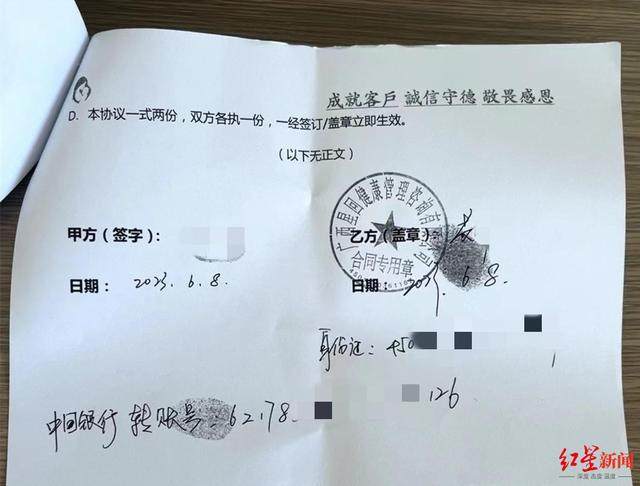 成就客戶 誠信守德 敬畏感恩
D. 本协议一式两份，双方各执一份，一经签订/盖章立即生效。
（以下无正文）
甲方（签字）：
乙方（盖章）：
合同专用章
日期： 2023.6.8.
日期： 2023.6.8.
身份证：450
中国银行 转账号：62178 126
红星新闻
深度 态度 温度